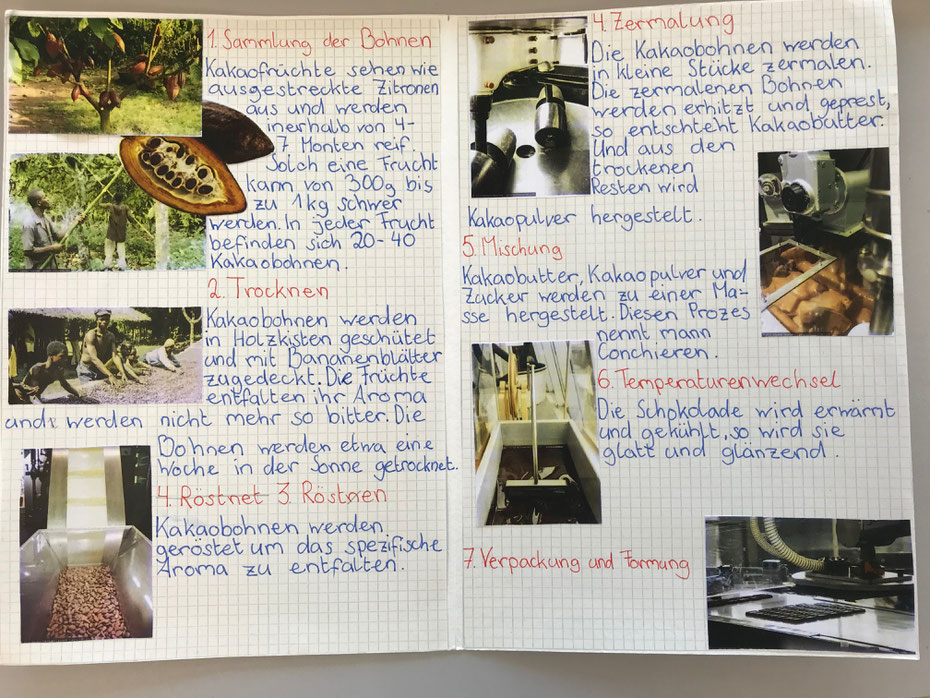 1. Sammlung der Bohnen
Kakaofrüchte sehen wie
ausgestreckte Zitronen
aus und werden
innerhalb von 4-
7 Monten reif.
Solch eine Frucht
kann von 300g bis
zu 1kg schwer
werden. In jeder Frucht
befinden sich 20-40
Kakaobohnen.
2. Trocknen
Kakaobohnen werden
in Holzkisten geschütet
und mit Bananenblätter
zugedeckt. Die Früchte
entfalten ihr Aroma
und werden nicht mehr so bitter. Die
Bohnen werden etwa eine
Woche in der Sonne getrocknet.
4. Röstnet 3. Röstnen
Kakaobohnen werden
geröstet um das spezifische
Aroma zu entfalten.
4. Zermalung
Die Kakaobohnen werden
in kleine Stücke zermalen.
Die zermalenen Bohnen
werden erhitzt und geprest,
so entschteht Kakaobutter.
Und aus den
trockenen
Resten wird
Kakaopulver hergestelt.
5. Mischung
Kakaobutter, Kakaopulver und
Zucker werden zu einer Ma-
sse hergestelt. Diesen Prozes
nennt mann
Conchieren.
6. Temperaturenwechsel
Die Schokolade wird erwärmt
und gekühlt, so wird sie
glatt und glänzend.
7. Verpackung und Formung